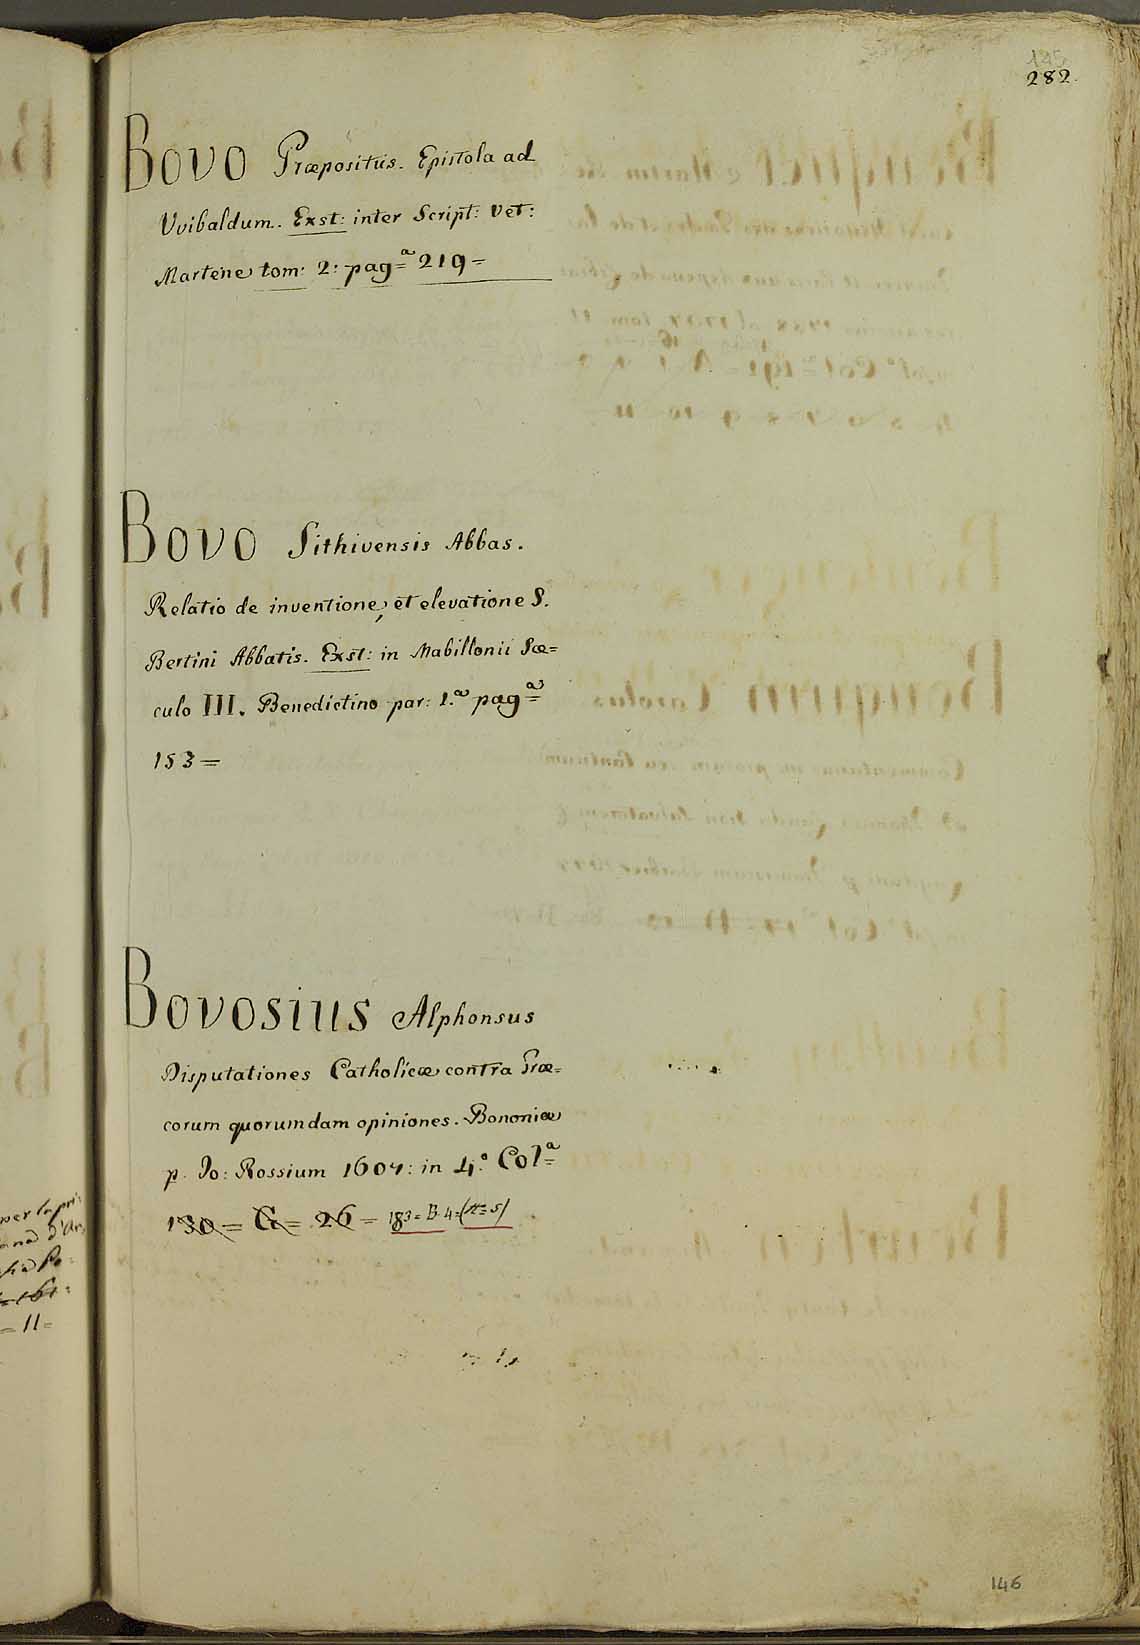 145
282.
Bovo Præpositus. Epistola ad
Vvibaldum. Exst: inter Script: vet:
Martene tom: 2: pag=ᵃ 219=
Bovo Sithivensis Abbas.
Relatio de inventione, et elevatione S.
Bertini Abbatis. Exst: in Mabillonii Sæ=
culo III. Benedictino par: 1.ᵃ pag=ᵃ
153=
Bovosius Alphonsus
Disputationes Catholicæ contra Græ=
corum quorumdam opiniones. Bononiæ
p. Jo: Rossium 1607: in 4.º Col=ᵃ
130= G= 26= 183= B. 4=
= 11=
146